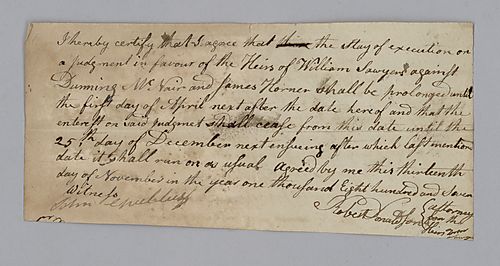 I hereby certify that I agree that the Stay of execution on
a judgment in favour of the Heirs of William Sawyers against
Dunning Mc Nair and James Horner Shall be prolonged until
the first day of April next after the date hereof and that the
interest on said judgmet Shall cease from this date until the
25th day of December next ensuing after which last mention
date it Shall run on as usual agreed by me this thirteenth
day of November in the year one thousand Eight hundred and Seven
Witness
John
Robert Donaldson attorney
for the
Heirs